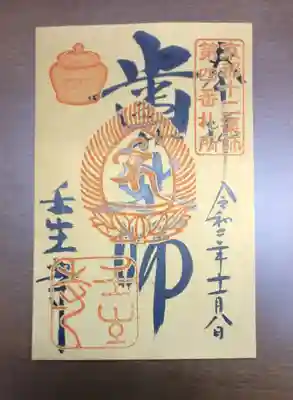 京都十二薬師
第四番札所
令和二年十一月八日
歯
師
壬生寺